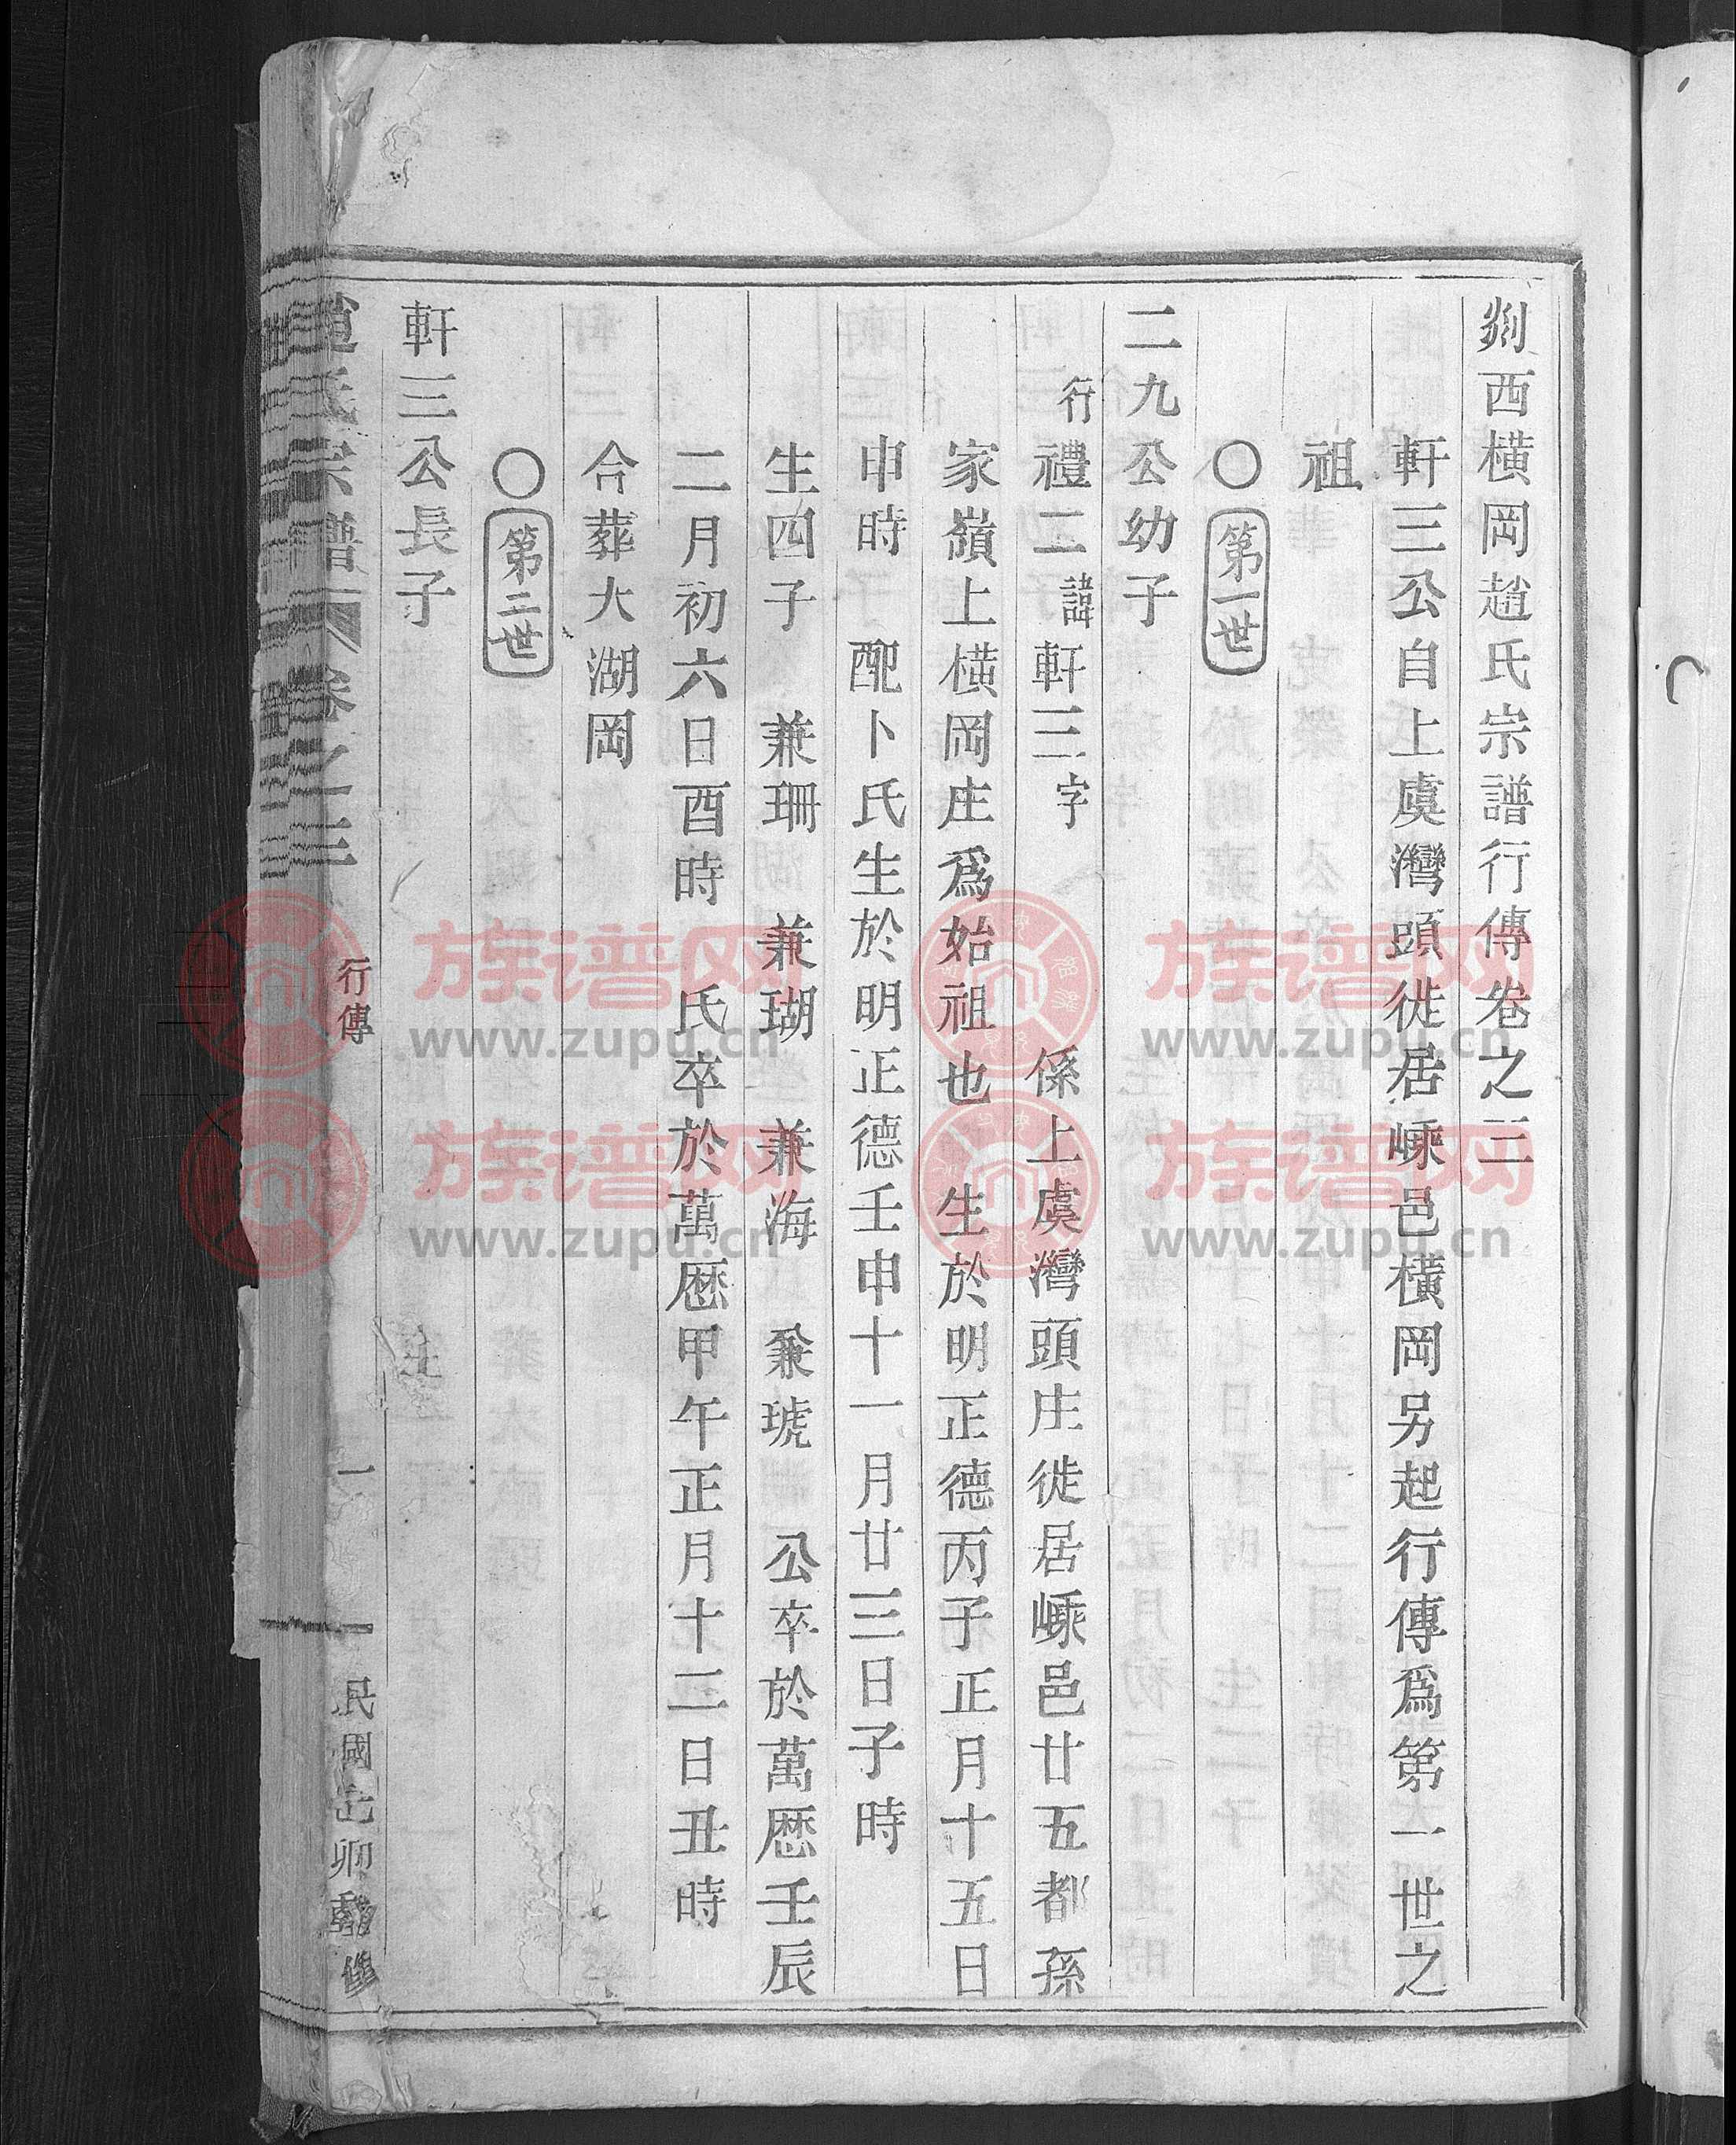 剡西橫岡趙氏宗譜行傳卷之三
軒三公自上虞灣頭徙居嵊邑橫岡另起行傳爲第一世之
祖
〇第一世
二九公幼子
行禮二諱軒三字 係上虞灣頭庄徙居嵊邑廿五都孫
家嶺上橫岡庄爲始祖也 生於明正德丙子正月十五日
申時 配卜氏生於明正德壬申十一月廿三日子時
生四子 兼珊 兼瑚 兼海 兼琥 公卒於萬歷壬辰
二月初六日酉時 氏卒於萬歷甲午正月十二日丑時
合葬大湖岡
〇第二世
軒三公長子
趙氏宗譜 卷之三 行傳 一 民國乙卯重修
族谱网
www.zupu.cn
族谱网
www.zupu.cn
族谱网
www.zupu.cn
族谱网
www.zupu.cn